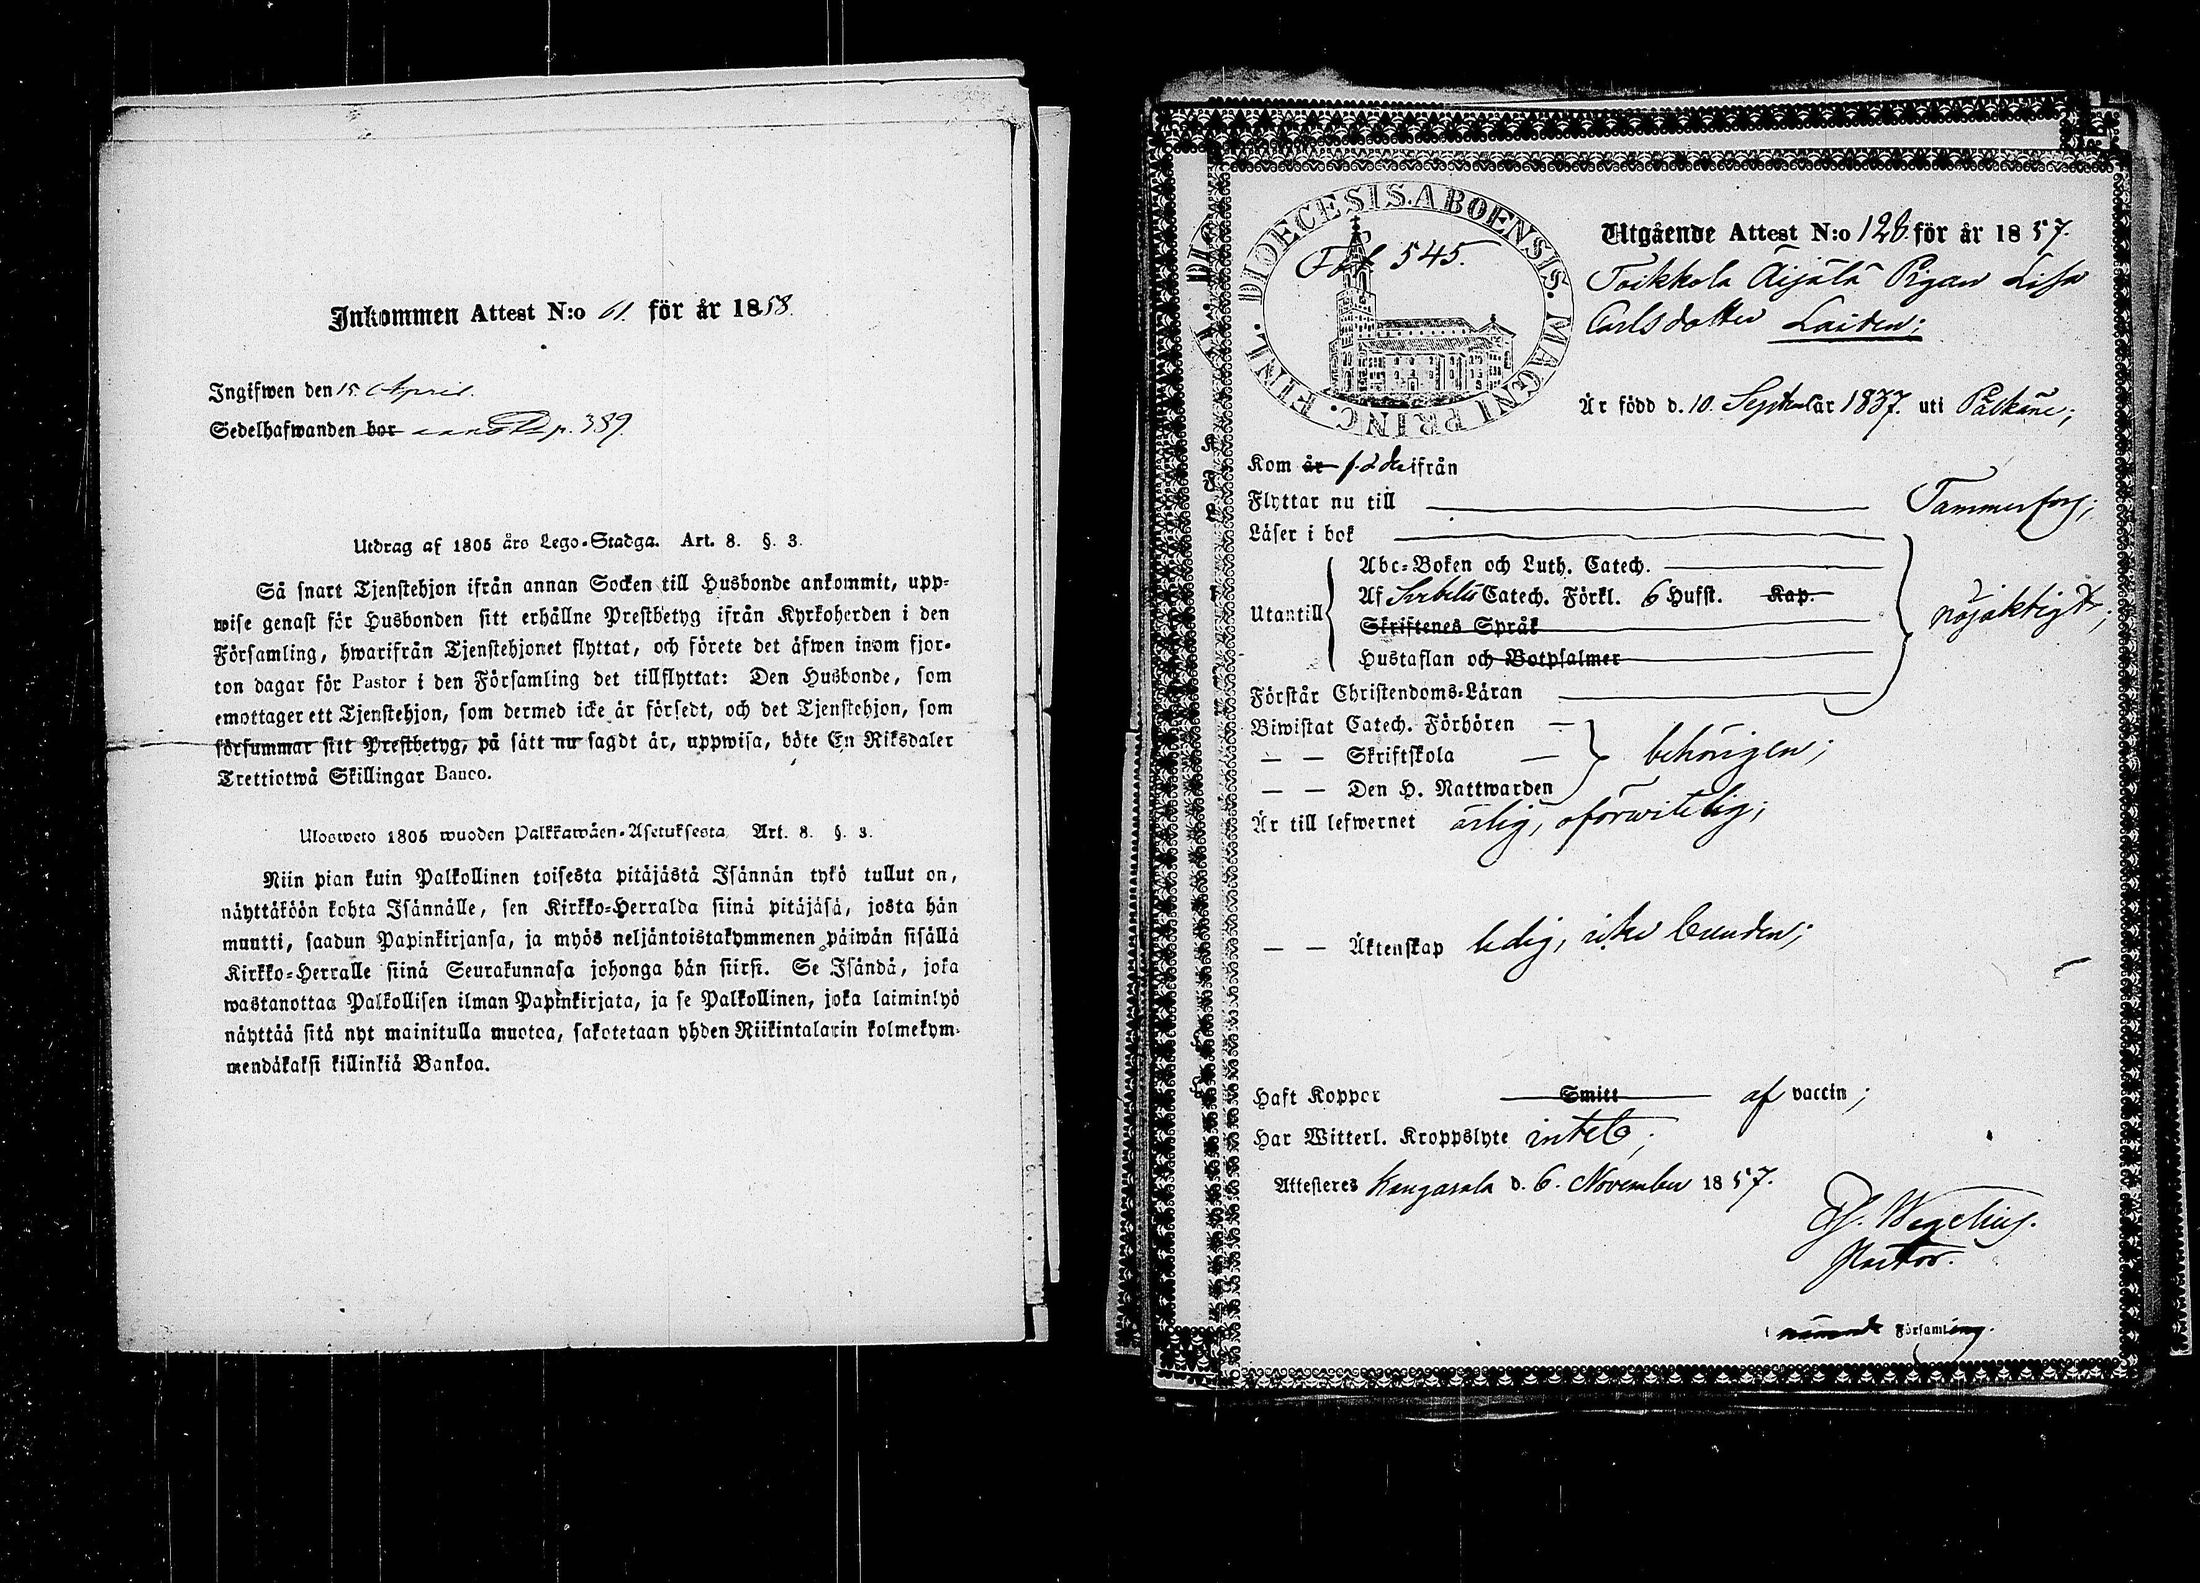 Inkommen Attest N:o 61. för år 1858.
Ingifwen den 15. April.
Sedelhafwanden bor p. 389.
Utdrag af 1805 års Lego-Stadga. Art. 8. §. 3.
Så snart Tjenstehjon ifrån annan Socken till Husbonde ankommit, upp-
wise genast för Husbonden sitt erhållne Prestbetyg ifrån Kyrkoherden i den
Församling, hwarifrån Tjenstehjonet flyttat, och förete det äfwen inom fjor-
ton dagar för Pastor i den Församling det tillflyttat: Den Husbonde, som
emottager ett Tjenstehjon, som dermed icke är försedt, och det Tjenstehjon, som
försummar sitt Prestbetyg, på sätt nu sagdt är, uppwisa, böte En Riksdaler
Trettiotwå Skillingar Banco.
Ulosweto 1805 wuoden Palkkawäen-Asetuksesta. Art. 8. §. 3.
Niin pian kuin Palkollinen toisesta pitäjästä Isännän tykö tullut on,
näyttäköön kohta Isännälle, sen Kirkko-Herralda siinä pitäjäsä, josta hän
muutti, saadun Papinkirjansa, ja myös neljäntoistakymmenen päiwän sisällä
Kirkko-Herralle siinä Seurakunnasa johonga hän siirsi. Se Isändä, joka
wastanottaa Palkollisen ilman Papinkirjata, ja se Palkollinen, joka laiminlyö
näyttää sitä nyt mainitulla muotoa, sakotetaan yhden Riikintalarin kolmekym-
mendäkaksi killinkiä Bankoa.
DIOECESIS. ABOENSIS. MAGNI PRINC. FINL.
Fol 545.
Utgående Attest N:o 126. för år 1857.
Toikkola Äijälä Pigan Lisa
Carlsdotter Laiden;
Är född d. 10. September år 1837. uti Pälkäne;
Kom år född ifrån
Flyttar nu till Tammerfors;
Läser i bok
Utantill
Abc-Boken och Luth. Catech.
Af Svebelii Catech. Förkl. 6 Hufst. Kap.
Skriftenes Språk
Hustaflan och Botpsalmer
nöjaktigt;
Förstår Christendoms-Läran
Biwistat Catech. Förhören —
— — Skriftskola — behörigen;
— — Den H. Nattwarden
Är till lefwernet ärlig, oförwitelig;
— — Äktenskap ledig, icke bunden;
Haft Koppor Smitt af vaccin;
Har Witterl. Kroppslyte intet;
Attesteres Kangasala d. 6. November 1857.
Wegelius.
Pastor.
i Församling.